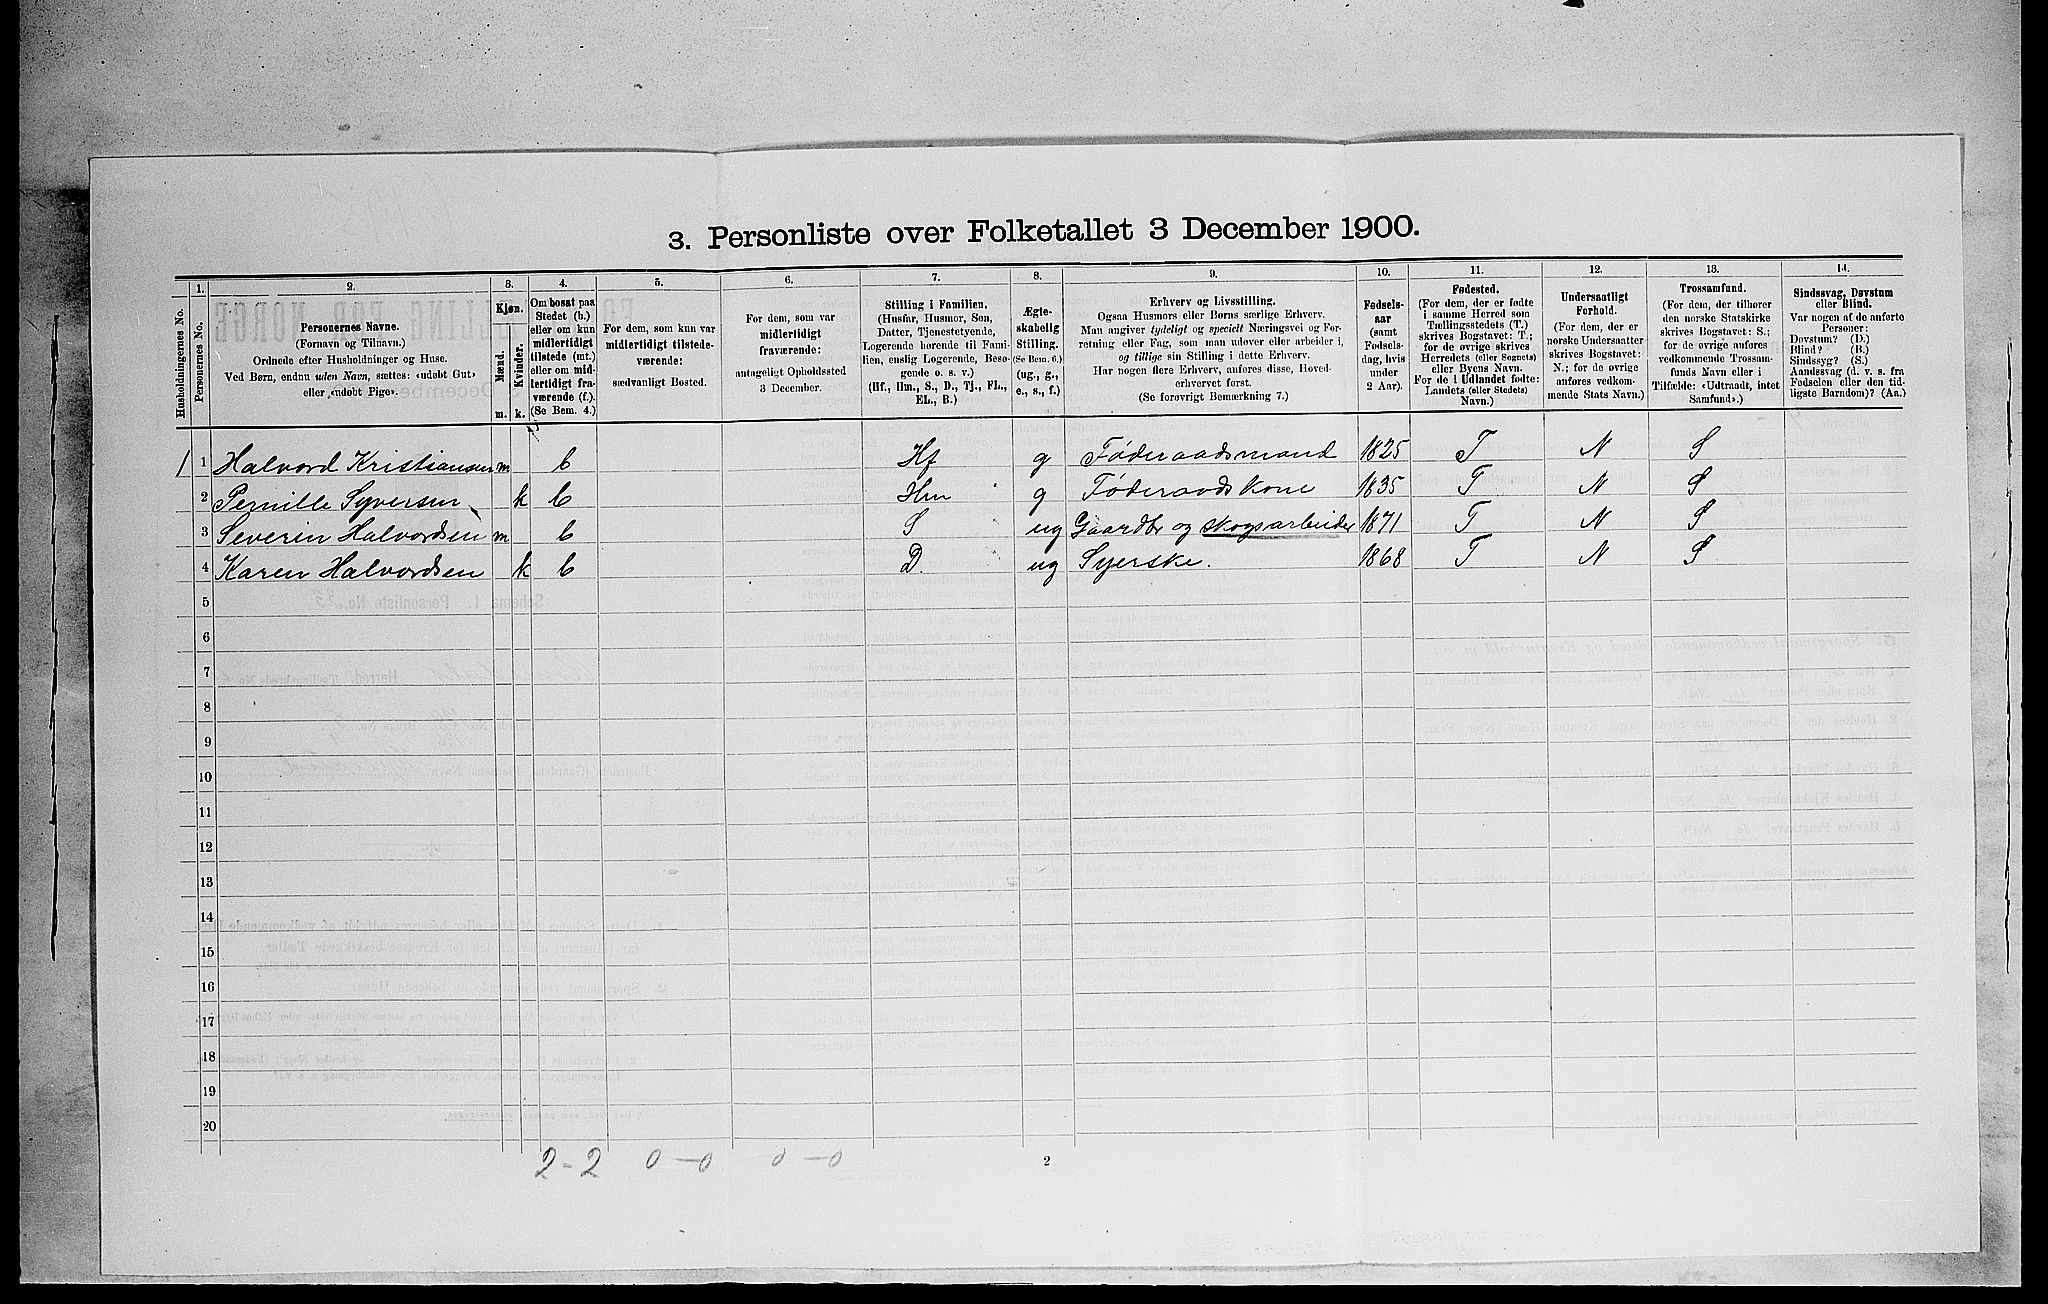 3. Personliste over Folketallet 3 December 1900.
1. 2. 3. 4. 5. 6. 7. 8. 9. 10. 11. 12. 13. 14.
Husholdningernes No.
Personernes No.
Personernes Navne.
(Fornavn og Tilnavn.)
Ordnede efter Husholdninger og Huse.
Ved Børn, endnu uden Navn, sættes: «udøbt Gut»
eller «udøbt Pige».
Kjøn.
Mænd.
Kvinder.
m. k.
Om bosat paa
Stedet (b.)
eller om kun
midlertidigt
tilstede (mt.)
eller om mid-
lertidigt fra-
værende (f.).
(Se Bem. 4.)
For dem, som kun var
midlertidigt tilstede-
værende:
sædvanligt Bosted.
For dem, som var
midlertidigt
fraværende:
antageligt Opholdssted
3 December.
Stilling i Familien.
(Husfar, Husmor, Søn,
Datter, Tjenestetyende,
Logerende hørende til Fami-
lien, enslig Logerende, Besø-
gende o. s. v.)
(Hf., Hm., S., D., Tj., FL.,
EL., B.)
Ægte-
skabelig
Stilling.
(Se Bem. 6.)
(ug., g.,
e., s., f.)
Erhverv og Livsstilling.
Ogsaa Husmors eller Børns særlige Erhverv.
Man angiver tydeligt og specielt Næringsvei og For-
retning eller Fag, som man udøver eller arbeider i,
og tillige sin Stilling i dette Erhverv.
Har nogen flere Erhverv, anføres disse, Hoved-
erhvervet først.
(Se forøvrigt Bemærkning 7.)
Fødsels-
aar
(samt
Fødsels-
dag, hvis
under
2 Aar).
Fødested.
(For dem, der er fødte
i samme Herred som
Tællingsstedets (T.)
skrives Bogstavet: T.;
for de øvrige skrives
Herredets (eller Sognets)
eller Byens Navn.
For de i Udlandet fødte:
Landets (eller Stedets)
Navn.)
Undersaatligt
Forhold.
(For dem, der er
norske Undersaatter
skrives Bogstavet:
N.; for de øvrige
anføres vedkom-
mende Stats Navn.)
Trossamfund.
(For dem, der tilhører
den norske Statskirke
skrives Bogstavet: S.;
for de øvrige anføres
vedkommende Trossam-
funds Navn eller i
Tilfælde: «Udtraadt, intet
Samfund».)
Sindssvag, Døvstum
eller Blind.
Var nogen af de anførte
Personer:
Døvstum? (D.)
Blind? (B.)
Sindssyg? (S.)
Aandssvag (d. v. s. fra
Fødselen eller den tid-
ligste Barndom)? (Aa.)
1 1 Halvord Kristiansen m b Hf g Føderaadsmand 1825 T N S
2 Pernille Syversen k b Hm g Føderaadskone 1835 T N S
3 Severin Halvordsen m b S ug Gaardbr og skogsarbeider 1871 T N S
4 Karen Halvordsen k b D. ug Syerske. 1868 T N S
5
6
7
8
9
10
11
12
13
14
15
16
17
18
19
20
2-2 0-0 0-0 2